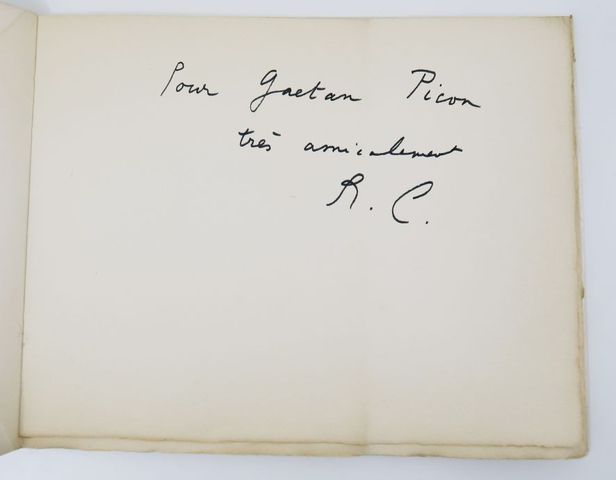 Pour Gaetan Picon
très amicalement
R. C.